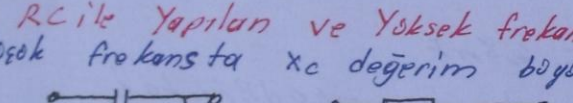 RC ile Yapılan ve Yüksek freka
frekansta Xc değerim büyü